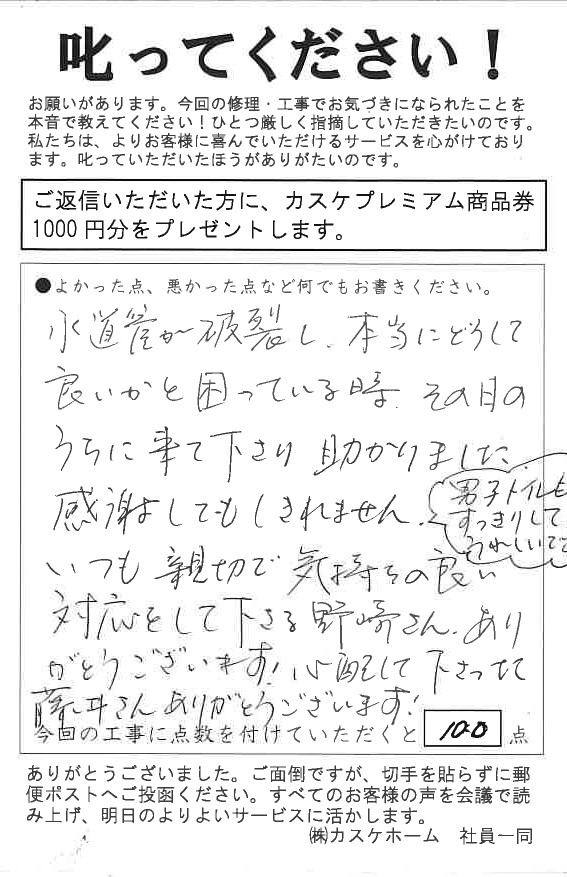 叱ってください！
お願いがあります。今回の修理・工事でお気づきになられたことを
本音で教えてください！ひとつ厳しく指摘していただきたいのです。
私たちは、よりお客様に喜んでいただけるサービスを心がけており
ます。叱っていただいたほうがありがたいのです。
ご返信いただいた方に、カスケプレミアム商品券
1000円分をプレゼントします。
●よかった点、悪かった点など何でもお書きください。
水道管が破裂し、本当にどうして
良いかと困っている時、その日の
うちに来て下さり助かりました。
感謝してもしきれません。
男子トイレも
すっきりして
うれしいです
いつも親切で気持ちの良い
対応をして下さる野崎さん、あり
がとうございます！心配して下さってた
藤井さんありがとうございます！
今回の工事に点数を付けていただくと 100 点
ありがとうございました。ご面倒ですが、切手を貼らずに郵
便ポストへご投函ください。すべてのお客様の声を会議で読
み上げ、明日のよりよいサービスに活かします。
㈱カスケホーム　社員一同